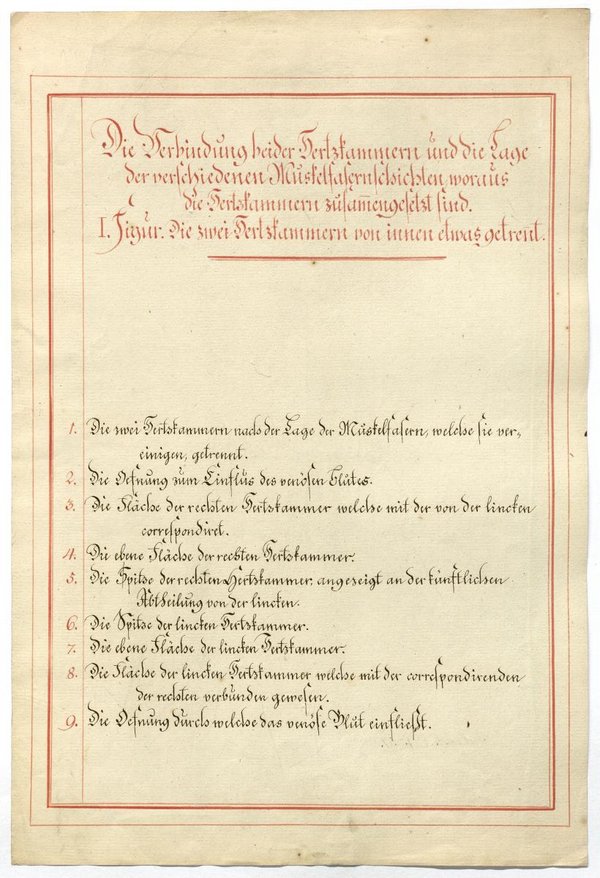 Die Verbindung beider Hertzkammern und die Lage
der verschiedenen Muskelfasernschichten, woraus
die Hertzkammern zusamengesetzt sind.
I. Figur. Die zwei Hertzkammern von innen etwas getrent.
1. Die zwei Hertzkammern nach der Lage der Muskelfasern, welche sie ver,
einigen, getrennt.
2. Die Oefnung zum Einflus des venösen Blutes.
3. Die Fläche der rechten Hertzkammer welche mit der von der lincken
correspondiret.
4. Die ebene Fläche der rechten Hertzkammer.
5. Die Spitze der rechten Hertzkammer, angezeigt an der künstlichen
Abtheilung von der lincken.
6. Die Spitze der lincken Hertzkammer.
7. Die ebene Fläche der lincken Hertzkammer.
8. Die Fläche der lincken Hertzkammer welche mit der correspondirenden
der rechten verbunden gewesen.
9. Die Oefnung durch welche das venöse Blut einfließt.